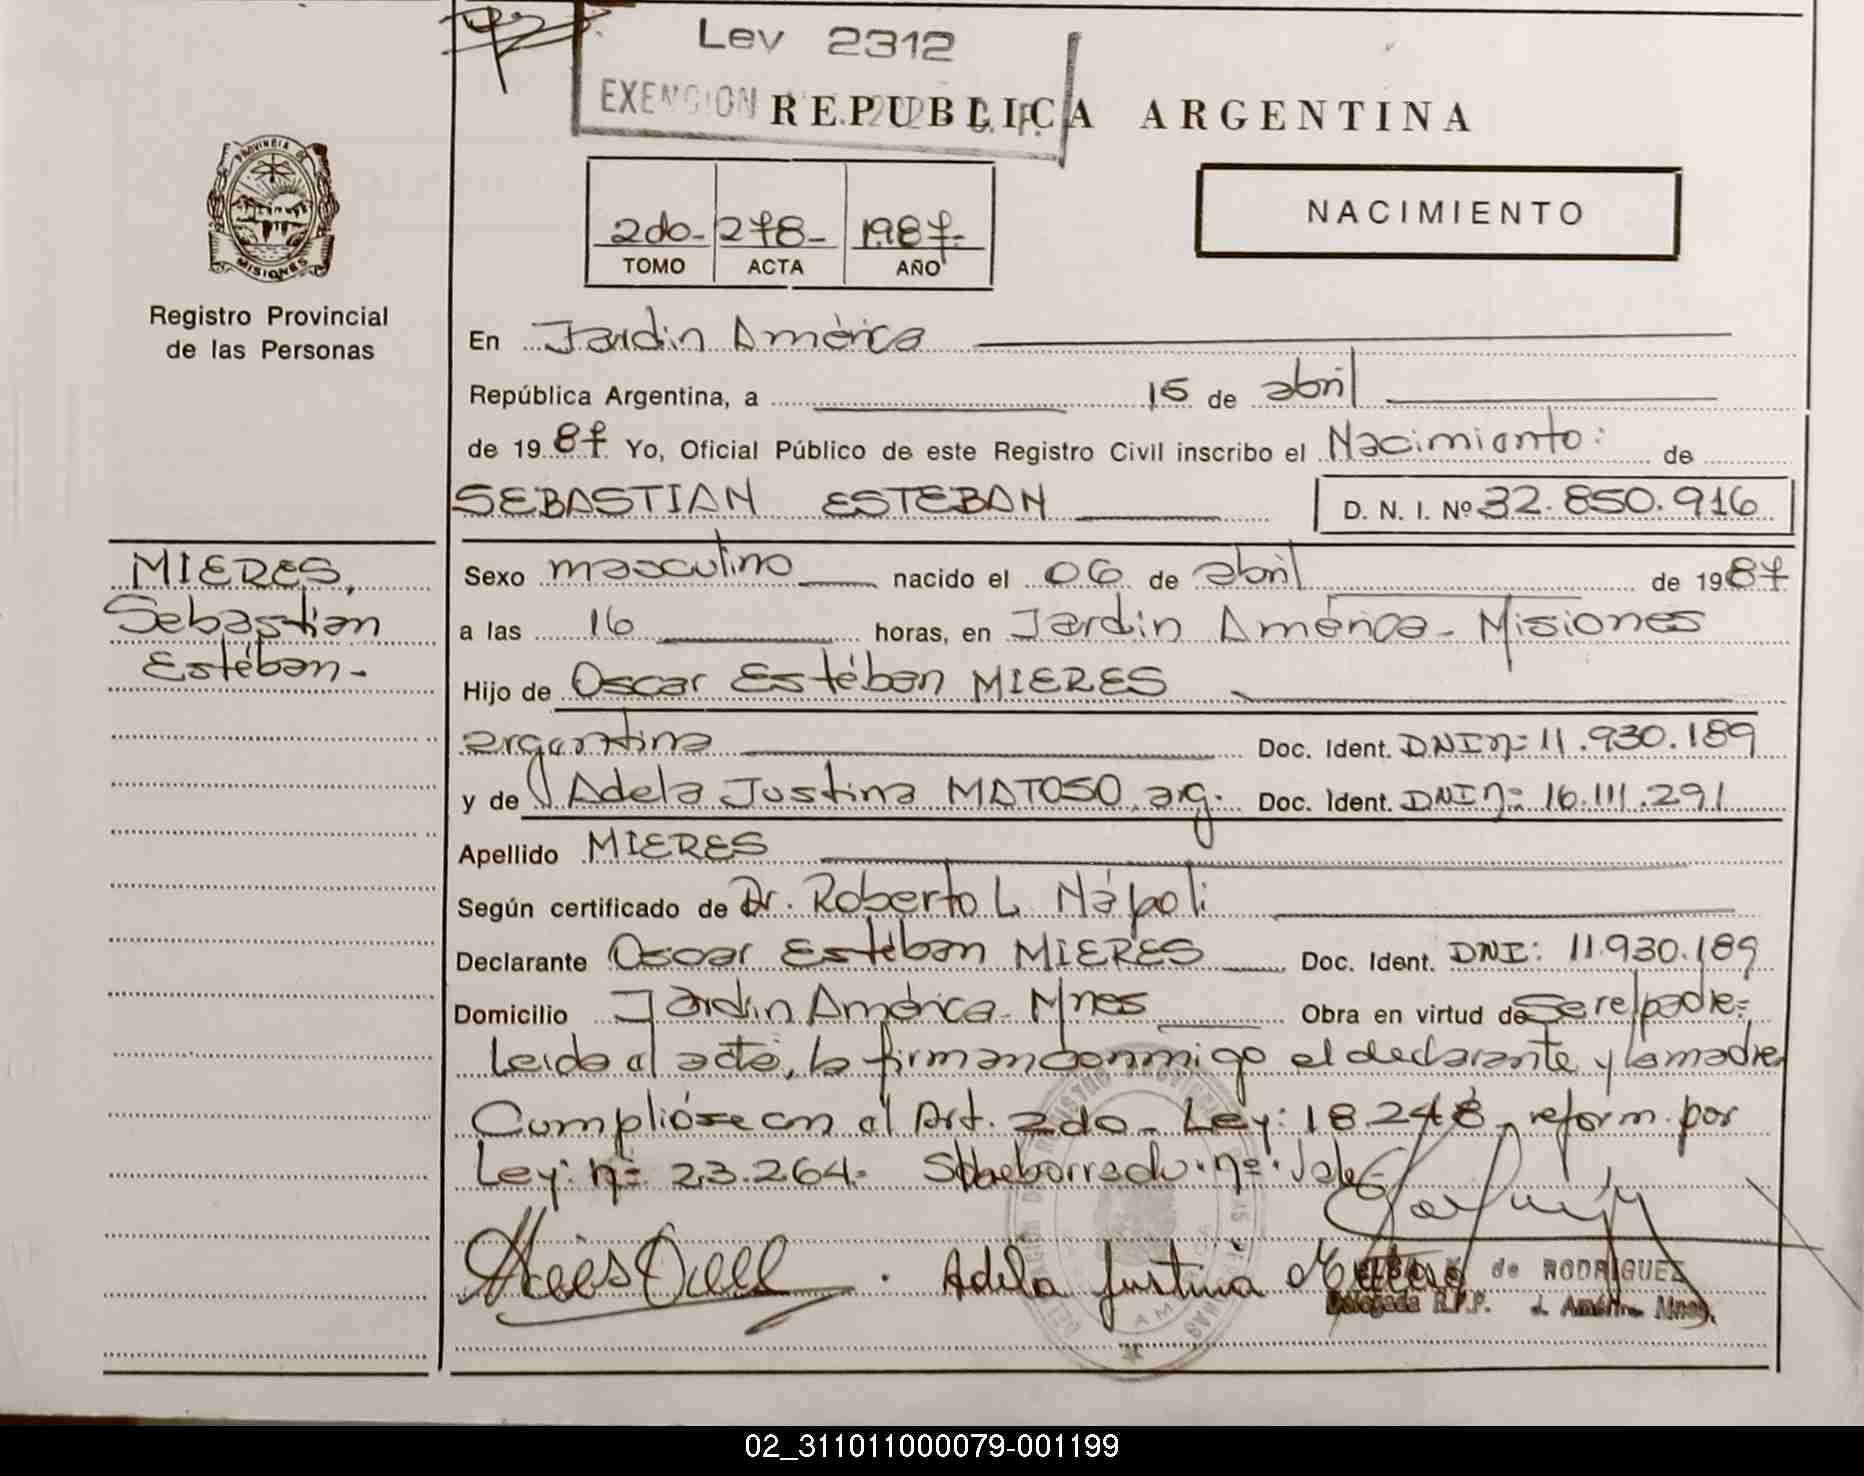 Ley 2312
EXENCION
REPUBLICA ARGENTINA
PROVINCIA DE
MISIONES
NACIMIENTO
2do- 278- 1987-
TOMO ACTA AÑO
Registro Provincial
de las Personas
En Jardin América
República Argentina, a 15 de abril
de 1987 Yo, Oficial Público de este Registro Civil inscribo el Nacimiento: de
SEBASTIAN ESTEBAN D. N. I. Nº 32.850.916
MIERES,
Sebastián
Estéban-
Sexo masculino nacido el 06 de abril de 1987
a las 16 horas, en Jardin América- Misiones
Hijo de Oscar Estéban MIERES
argentina Doc. Ident. DNI nº: 11.930.189
y de Adela Justina MATOSO, arg. Doc. Ident. DNI nº: 16.111.291
Apellido MIERES
Según certificado de Dr. Roberto L. Nápoli
Declarante Oscar Estéban MIERES Doc. Ident. DNI: 11.930.189
Domicilio Jardin América- Mnes Obra en virtud de Ser el padre=
Leida el acta, la firman conmigo el declarante y la madre
Cumplióse con el Art. 2do- Ley: 18.248, reform. por
Ley: nº 23.264.- Sobreborrado. nº. Vale-
Adela Justina Matoso
de RODRIGUEZ
Delegada R.P.P. J. América Mnes.
02_311011000079-001199